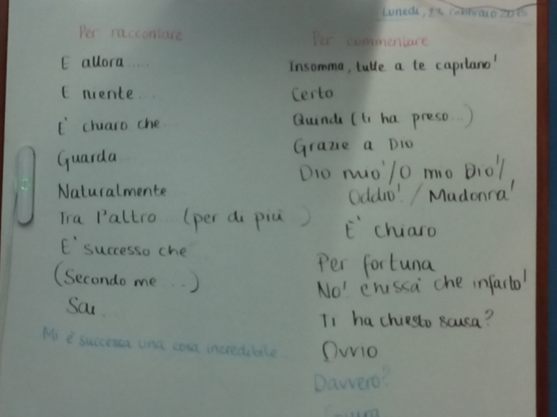 Lunedì, 23 febbraio 2015
Per raccontare
E allora....
E niente...
E' chiaro che
Guarda
Naturalmente
Tra l'altro...(per di più )
E' successo che
(Secondo me...)
Sai
Mi è successa una cosa incredibile
Per commentare
Insomma, tutte a te capitano!
Certo
Quindi (ti ha preso...)
Grazie a Dio
Dio mio!/O mio Dio!/
Oddio!/Madonna!
E' chiaro
Per fortuna
No! Chissà che infarto!
Ti ha chiesto scusa?
Ovvio
Davvero?